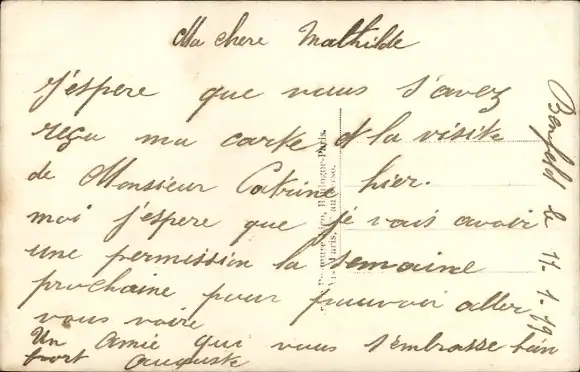 Ma chere Mathilde
J'espere que vous l'avez
reçu ma carte et la visite
de Monsieur Catrine hier.
moi j'espere que je vais avoir
une permission la semaine
prochaine pour pouvoir aller
vous voire
Un Amie qui vous s'embrasse bien
fort Auguste
Benfeld le 11.1.19
Boulogne-Paris.